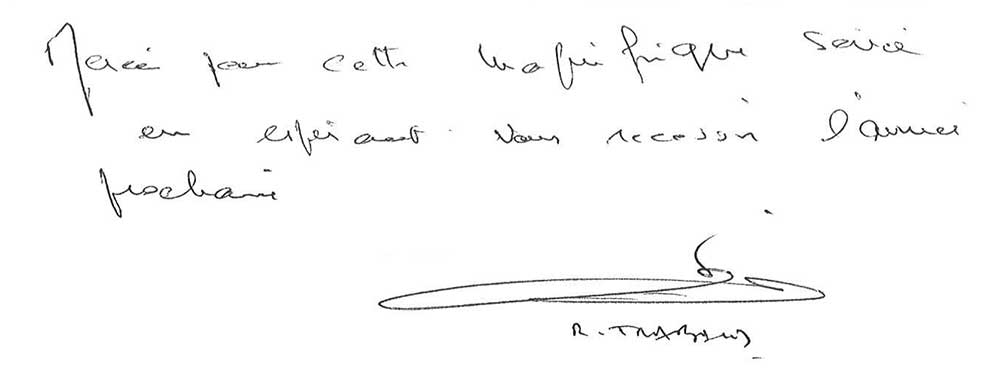 Merci pour cette magnifique soirée
en espérant vous recevoir l'année
prochaine
R. TRABAUD